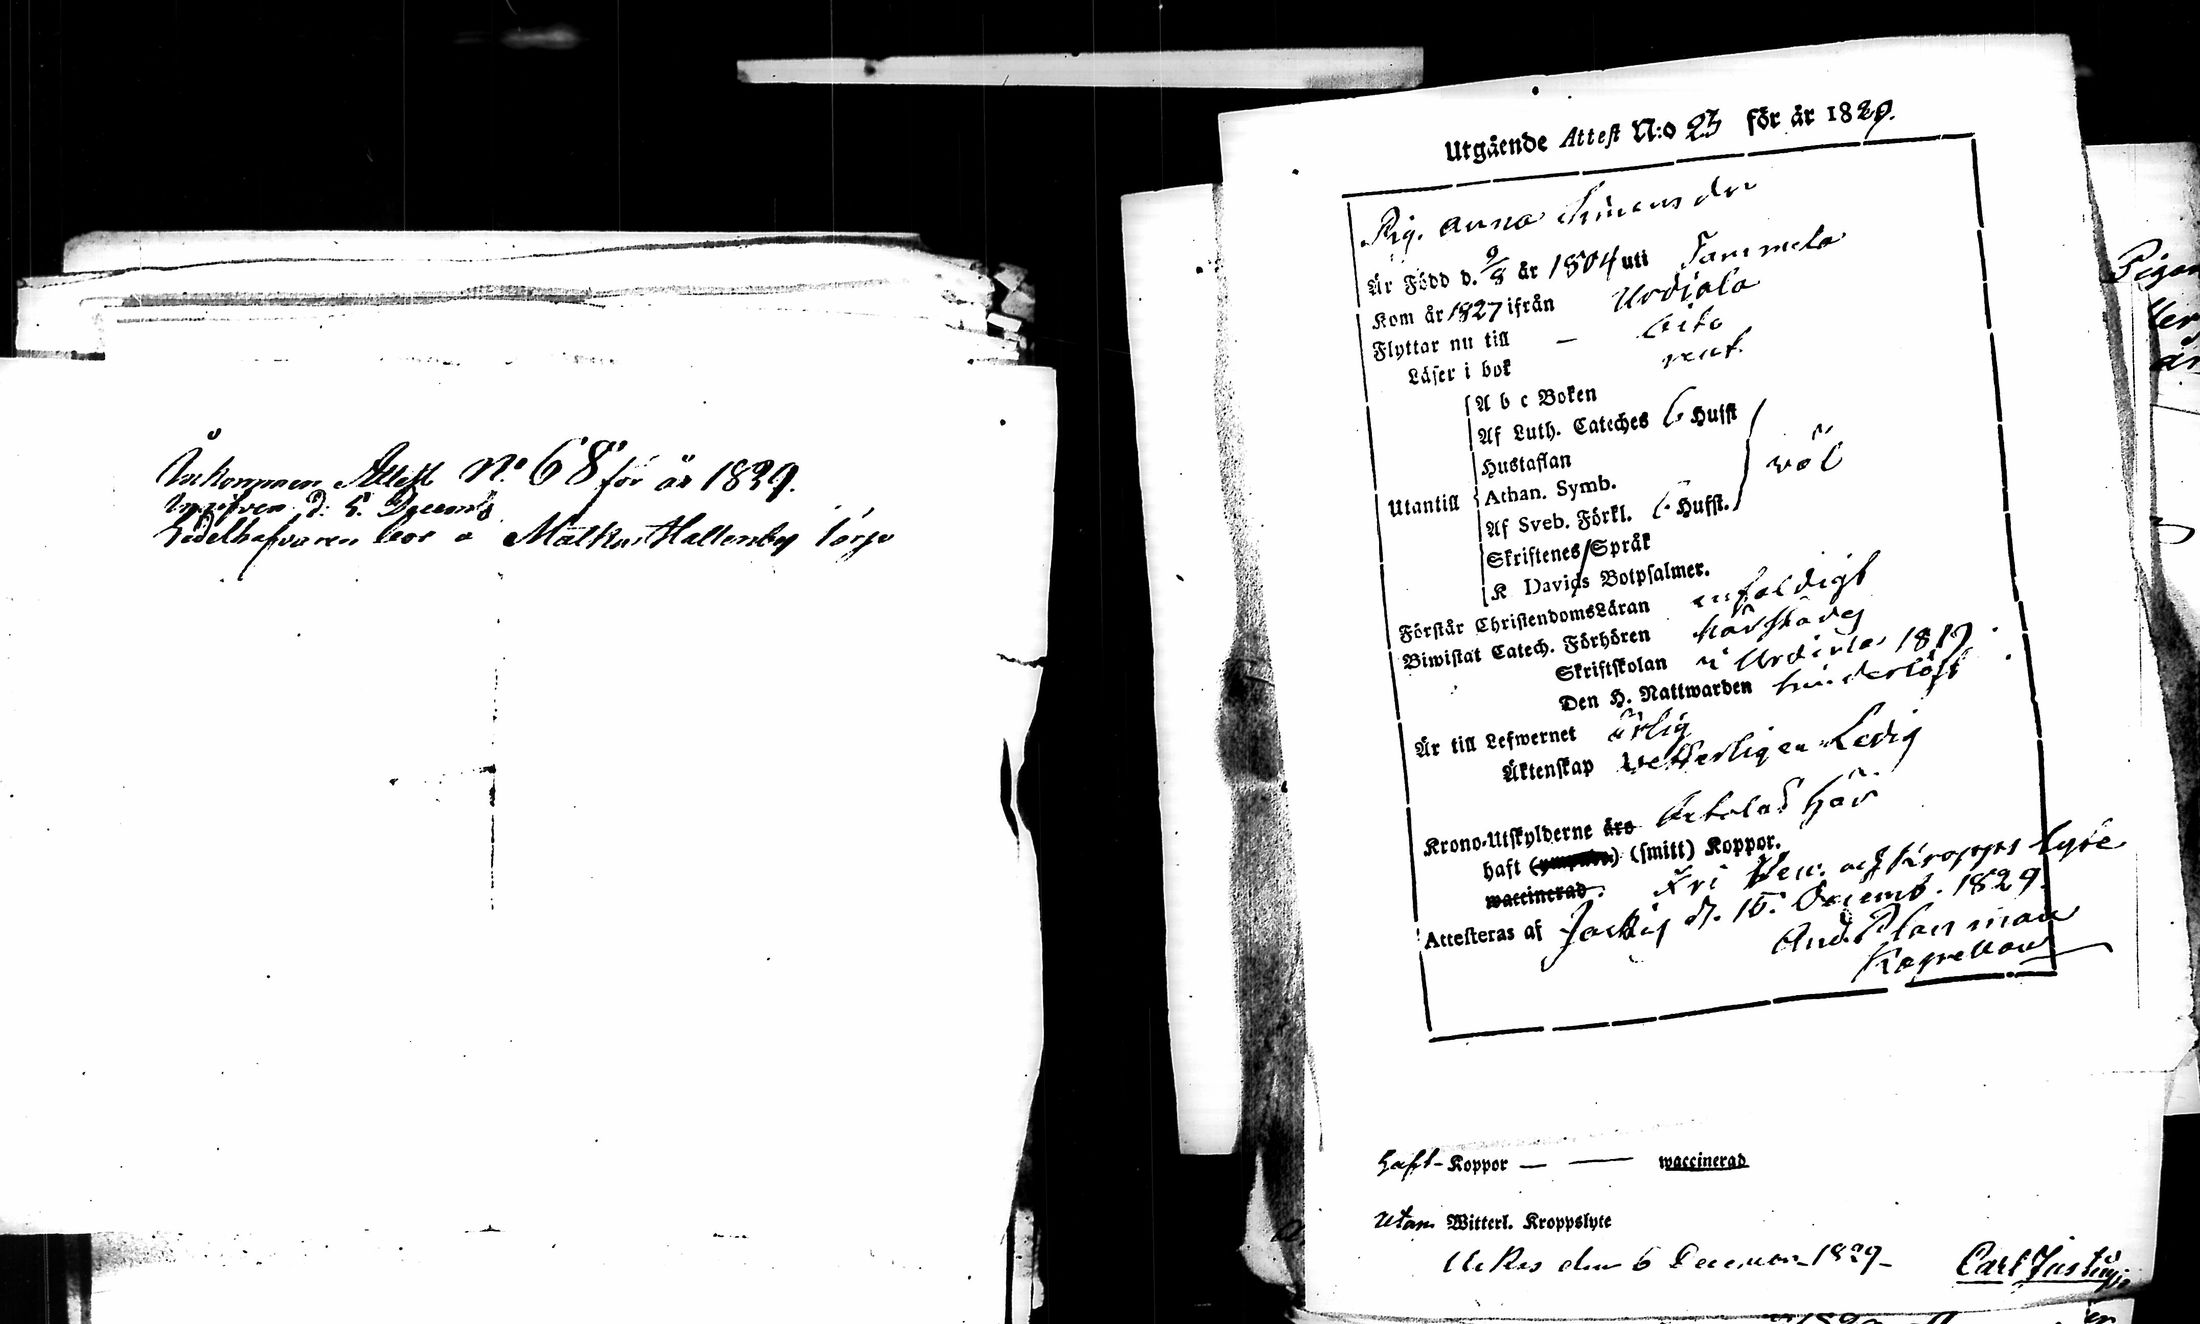 Inkommen Attest No 68 för år 1829.
Ingifven d. 5. Decemb
Sedelhafvaren bor a Hallenby Torp
Utgående Attest N:o 23 för år 1829.
Pig. Anna Simens dr
Är Född d. 9/8 år 1804 uti Tammela
Kom år 1827 ifrån Urdiala
Flyttar nu till — dito
Läser i bok rent.
A b c Boken
Af Luth. Cateches 6 Hufst
Hustaflan
väl
Utantill Athan. Symb.
Af Sveb. Förkl. 6 Hufst.
Skriftenes Språk
K Davids Botpsalmer.
Förstår ChristendomsLäran enfaldigt
Biwistat Catech. Förhören härstädes
Skriftskolan i Urdiala 1819.
Den H. Nattwarden hinderlöst
Är till Lefwernet ärlig
Äktenskap vetterligen Ledig
Krono-Utskylderne äro betalas här
haft (ympade) (smitt) Koppor.
waccinerad. Fri Ven. och Kropps lyte
Attesteras af Jockis d. 15. Decemb. 1829.
And. Planman
Kapellan
haft Koppor — — waccinerad
Utan Witterl. Kroppslyte
den 6 December 1829
Carl
Pigan